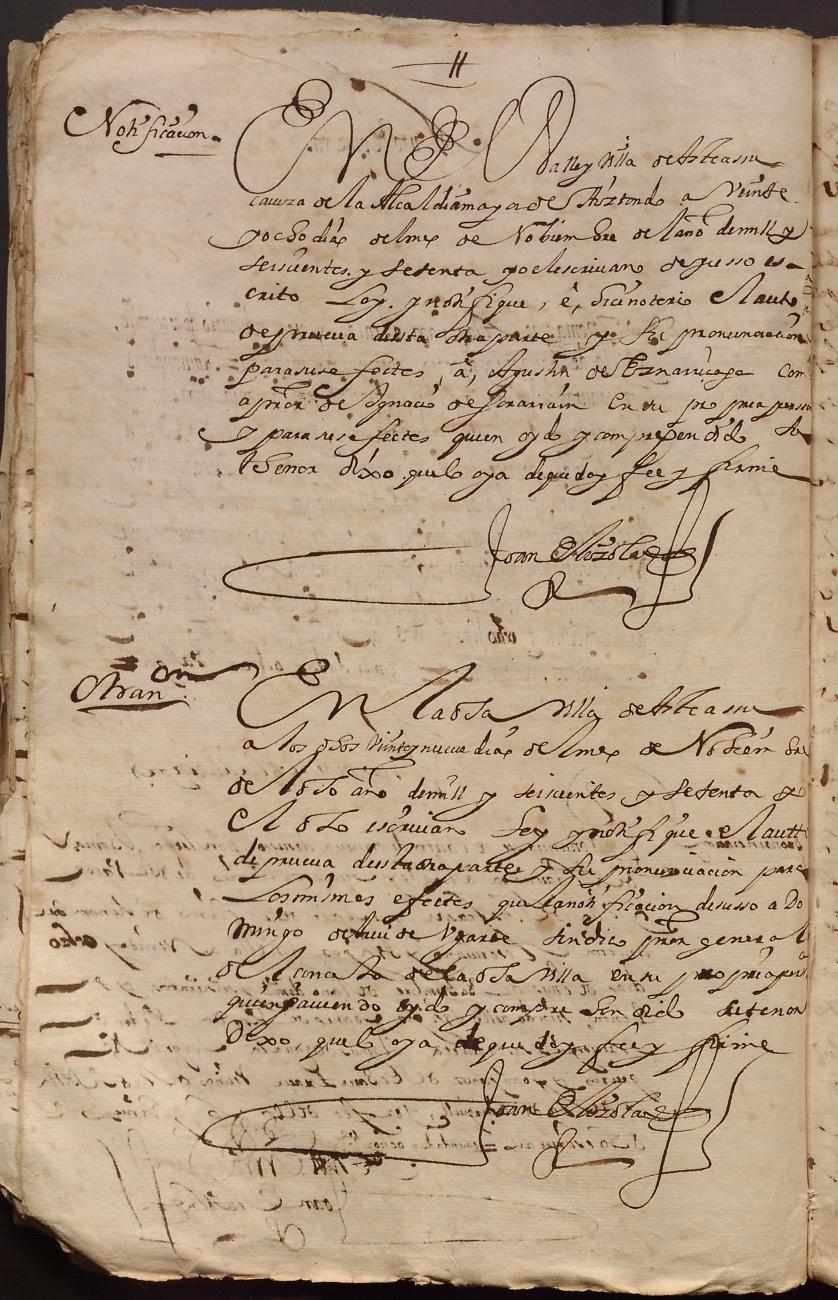 Notificacion
En el Valle y Villa de Asteasu
caveza de la Alcaldia mayor de Aiztondo a Veinte
y ocho dias del mes de Nobiembre del año de mill y
seiscientos y setenta yo el escrivano de susso es-
crito ley, y notifique, é, hice notorio el auto
de prueva desta otra parte y su pronunciacion
para sus efectos, á, Agustin de como
a pror de Ignacio de en su propria persona
y para sus efectos quien oydo y comprehendido su
thenor dixo que lo oya de que doy fee y firme
Joan de Elizalde
Otra non
En la dha Villa de Asteasu
a los dhos Veinte y nueve dias del mes de Nobiembre
del dho año de mill y seiscientos y setenta yo
el dho escrivano ley y notifique el autto
de prueva desta otra parte y su pronunciacion para
los mismos efectos que la notificacion de susso a Do
mingo de de Ugarte sindico pror general
del concejo de la dha Villa en su propria persona
quien haviendo oydo y comprehendido su tenor
Dixo que lo oya de que doy fee y firme
Joan de Elizalde